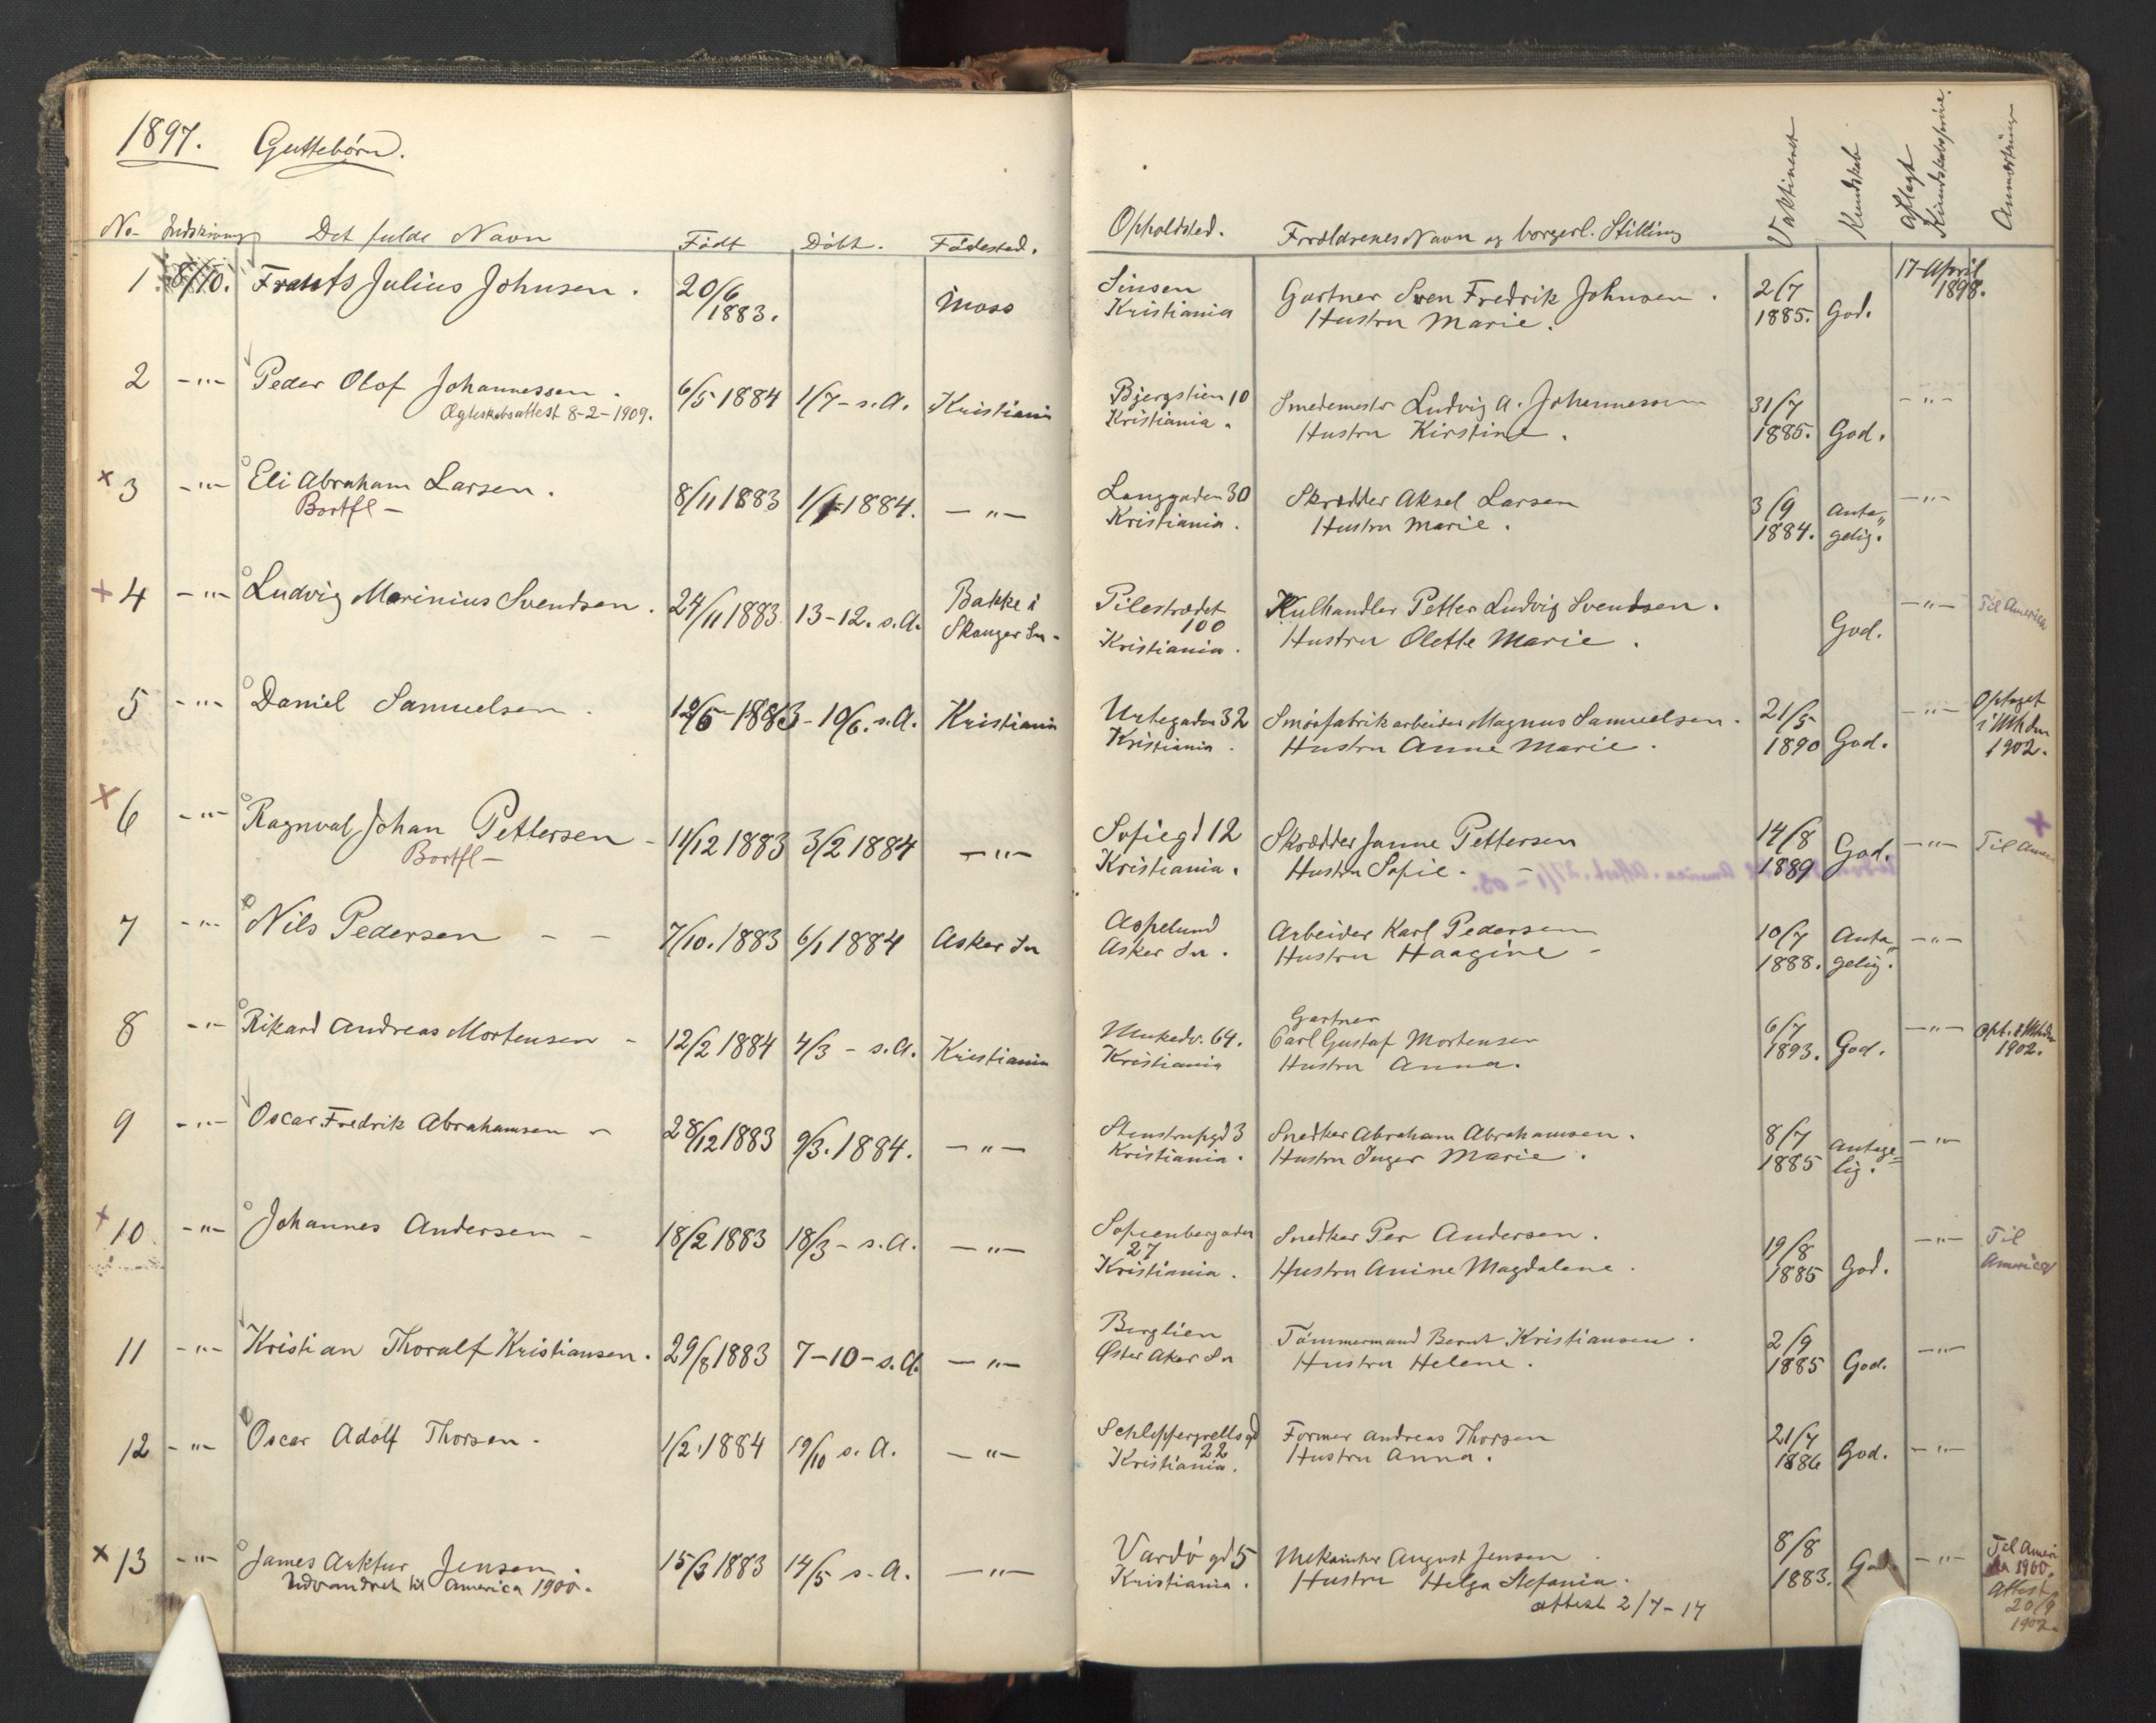 1897. Guttebørn.
No Indskrivning Det fulde Navn Født Døbt. Fødested.
1 8/10. Frants Julius Johnsen. 20/6 1883. Moss
2 -"- Peder Olof Johannessen. 6/5 1884 1/7 - s.A. Kristiania
Ægteskabsattest 8-2-1909.
× 3 -"- Eli Abraham Larsen. 8/11 1883 1/1 1884. -"-
Bortfl -
+ 4 -"- Ludvig Marinius Svendsen. 24/11 1883 13-12. s.A. Bakke i
Skauger Sn -
5 -"- Daniel Samuelsen. 12/5 1883 - 10/6. s.A. Kristiania
× 6 -"- Ragnval Johan Pettersen - 11/12 1883 3/2 1884 -"-
Bortfl -
7 -"- Nils Pedersen - - 7/10. 1883 6/1 1884 Asker Sn
8 -"- Rikard Andreas Mortensen - 12/2 1884 4/3 - s.A. Kristiania
9 -"- Oscar Fredrik Abrahamsen - 28/12 1883 9/3. 1884. -"-
+ 10 -"- Johannes Andersen - 18/2 1883 18/3 - s.A. -"-
11 -"- Kristian Thoralf Kristiansen. 29/8 1883 7-10-s.A. -"-
12 -"- Oscar Adolf Thorsen. 1/2. 1884 19/10 s.A. -"-
× 13 -"- James Arktur Jensen. 15/3 1883 14/5 s.A. -"-
Udvandret til America 1900.
Opholdsted. Forældrenes Navn og borgerl. Stilling Vaktineret Kundskab Aflagt Kundskabsprøve. Anmærkninger
Sinsen Gartner Sven Fredrik Johnsen. 2/7 17 April
Kristiania Hustru Marie. 1885. God. 1898.
Bjergstien 10 Smedemester Ludvig A. Johannessen 31/7 -"-
Kristiania. Hustru Kirstine. 1885. God.
Langgaden 30 Skrædder Aksel Larsen 3/9 Anta- -"-
Kristiania. Hustru Marie. 1884. gelig.
Pilestrædet Kulhandler Petter Ludvig Svendsen. -"- Til America
100 Hustru Olette Marie. God.
Kristiania.
Urtegaden 32 Smørfabrikarbeider Magnus Samuelsen. 21/5 -"- Optaget
Kristiania. Hustru Anne Marie. 1890 God. i Mkdm
1902.
Sofiegd 12 Skrædder Janne Pettersen 14/8 God. -"- Til Amer
Kristiania. Hustru Sofie. - 1889
Aspelund Arbeider Karl Pedersen 10/7 Anta- -"-
Asker Sn. Hustru Haagine - 1888. gelig.
Gartner
Munkedv. 64. Carl Gustaf Mortensen 6/7 -"- Opt. i Mkdm
Kristiania Hustru Anna. 1893. God. 1902.
Stenstrupgd 3 Snedker Abraham Abrahamsen. 8/7 Antage= -"-
Kristiania. Hustru Inger Marie. 1885 lig.
Sofienbergaden Snedker Per Andersen. 19/8 -"- Til
27
Kristiania. Hustru Anine Magdalene. 1885 God. America
Berglien Tømmermand Bernt Kristiansen. 2/9 -"-
Øster Aker Sn Hustru Helene. 1885 God.
Schleppegrellsgd Former Andreas Thorsen 21/7 -"-
22 Hustru Anna. 1886 God.
Kristiania.
Vardø gd 5 Mekaniker August Jensen 8/8 -"- Til Ameri
Kristiania. Hustru Helga Stefania. 1883. God. ka 1900.
attest 2/7-17 Attest
20/9
1902